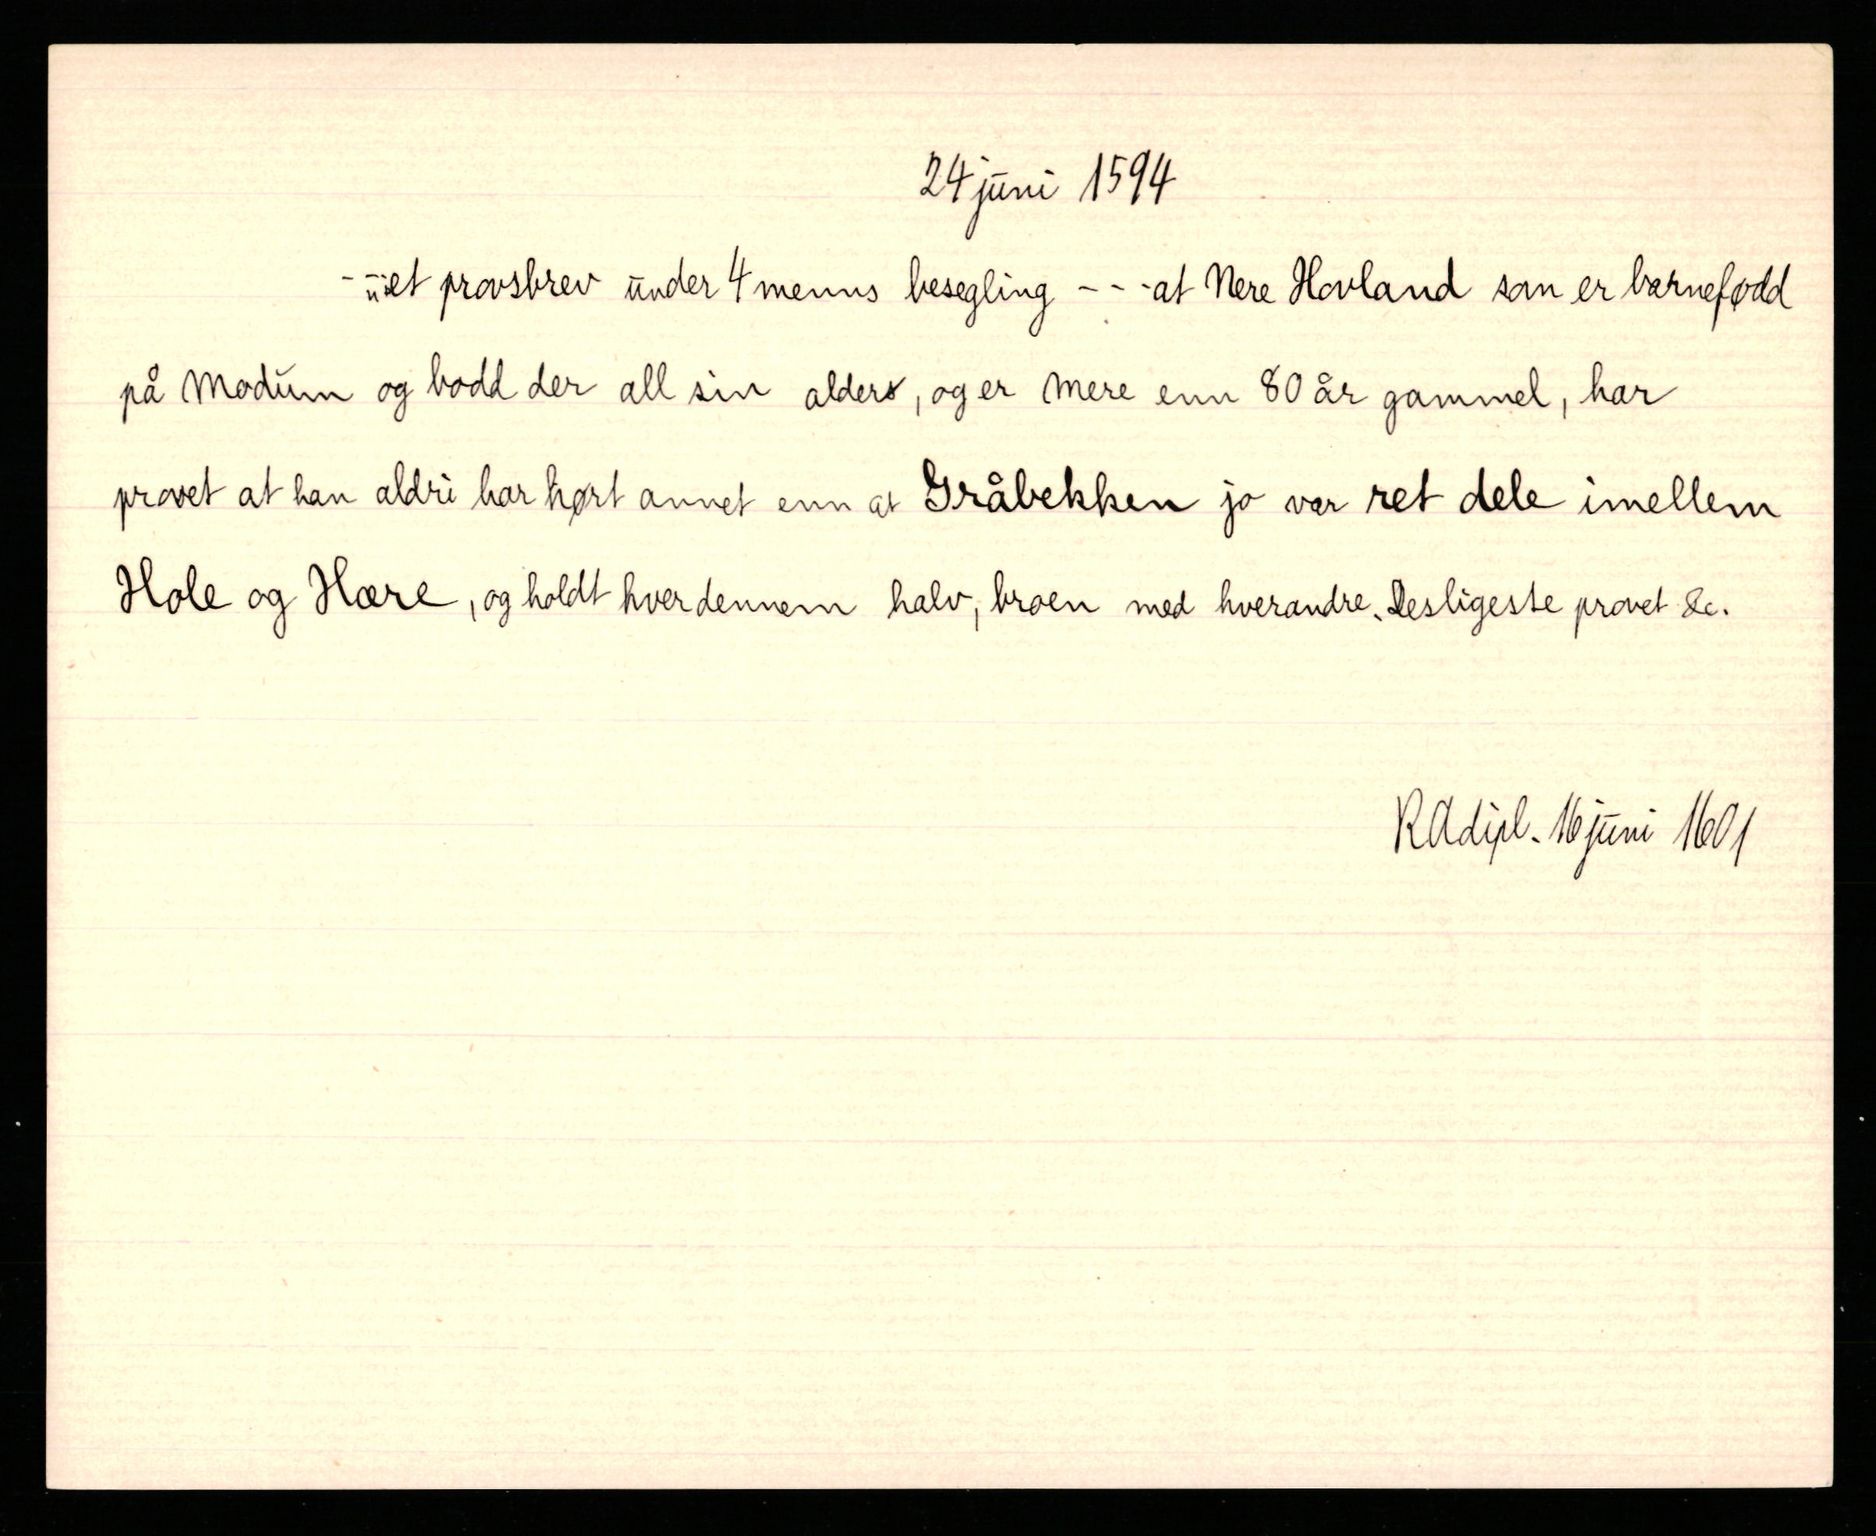 24 juni 1594
- et provsbrev under 4 menns besegling - - - at Nere Hovland som er barnefødd
på Modum og bodd der all sin alders, og er mere enn 80 år gammel, har
provet at han aldri har hørt annet enn at Gråbekken jo var ret dele imellem
Hole og Hære, og holdt hver dennem halv, broen med hverandre. Desligeste provet &c.
RA dipl. 16 juni 1601